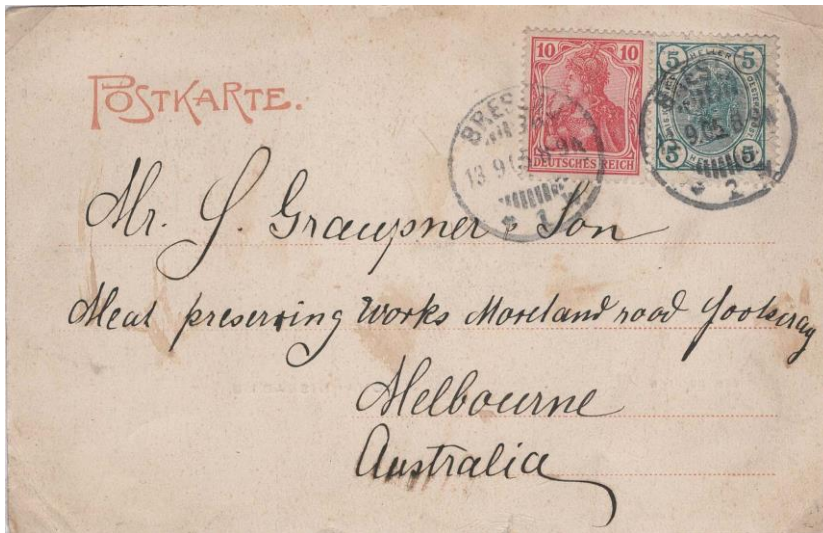 POSTKARTE.
10 10
DEUTSCHES REICH
5 5
5 5
BRES
13 9 05 8-9V
* 1
BRES
9.05.8-9V
* 2
Mr. J. Graupner & Son
Meat preserving Works Moreland road footscray
Melbourne
Australia